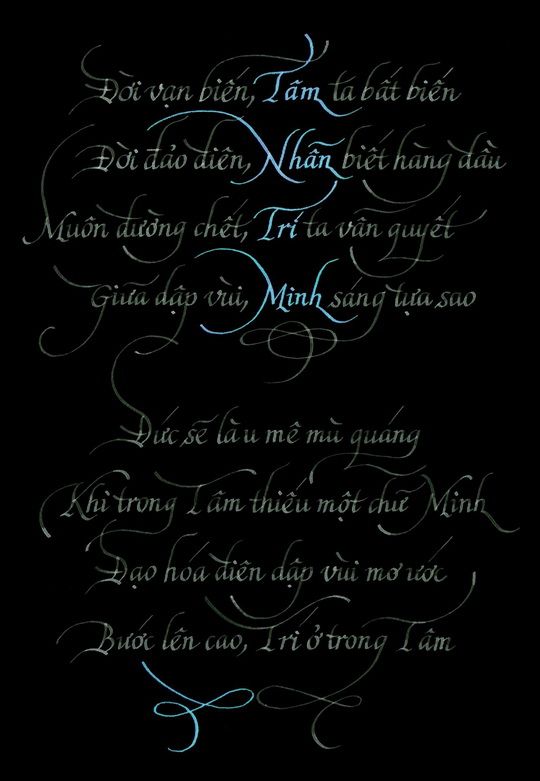 Đời vạn biến, Tâm ta bất biến
Đời đảo điên, Nhẫn biết hàng đầu
Muôn đường chết, Trí ta vẫn quyết
Giữa dập vùi, Minh sáng tựa sao
Đức sẽ là u mê mù quáng
Khi trong Tâm thiếu một chữ Minh
Đạo hóa điên dập vùi mơ ước
Bước lên cao, Trí ở trong Tâm